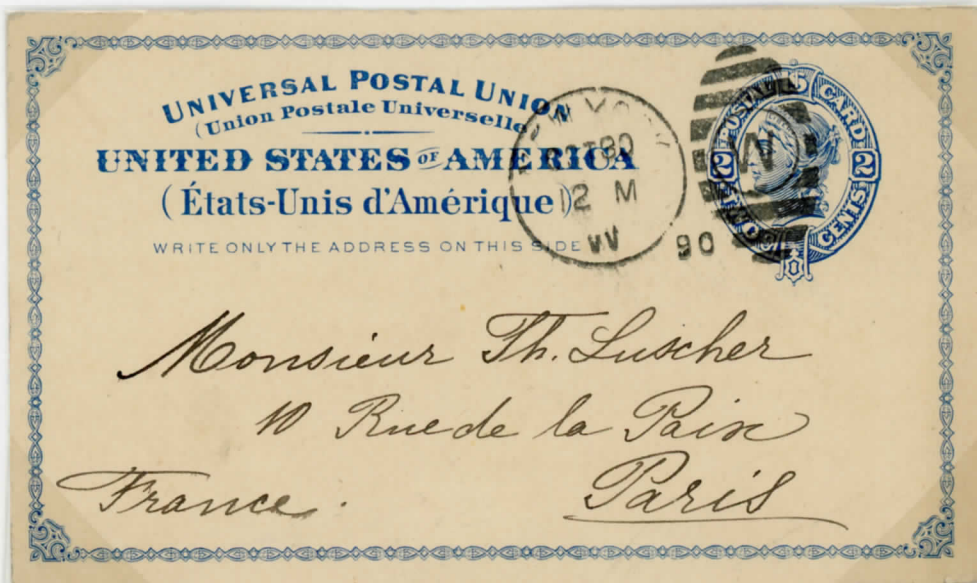 UNIVERSAL POSTAL UNION
(Union Postale Universelle)
UNITED STATES OF AMERICA
(États-Unis d'Amérique)
WRITE ONLY THE ADDRESS ON THIS SIDE
NEW YORK
OCT
12 M
W
90
W
U.S. POSTAL CARD
2 2
TWO CENTS
Monsieur Th. Luscher
10 Rue de la Paix
Paris
France.